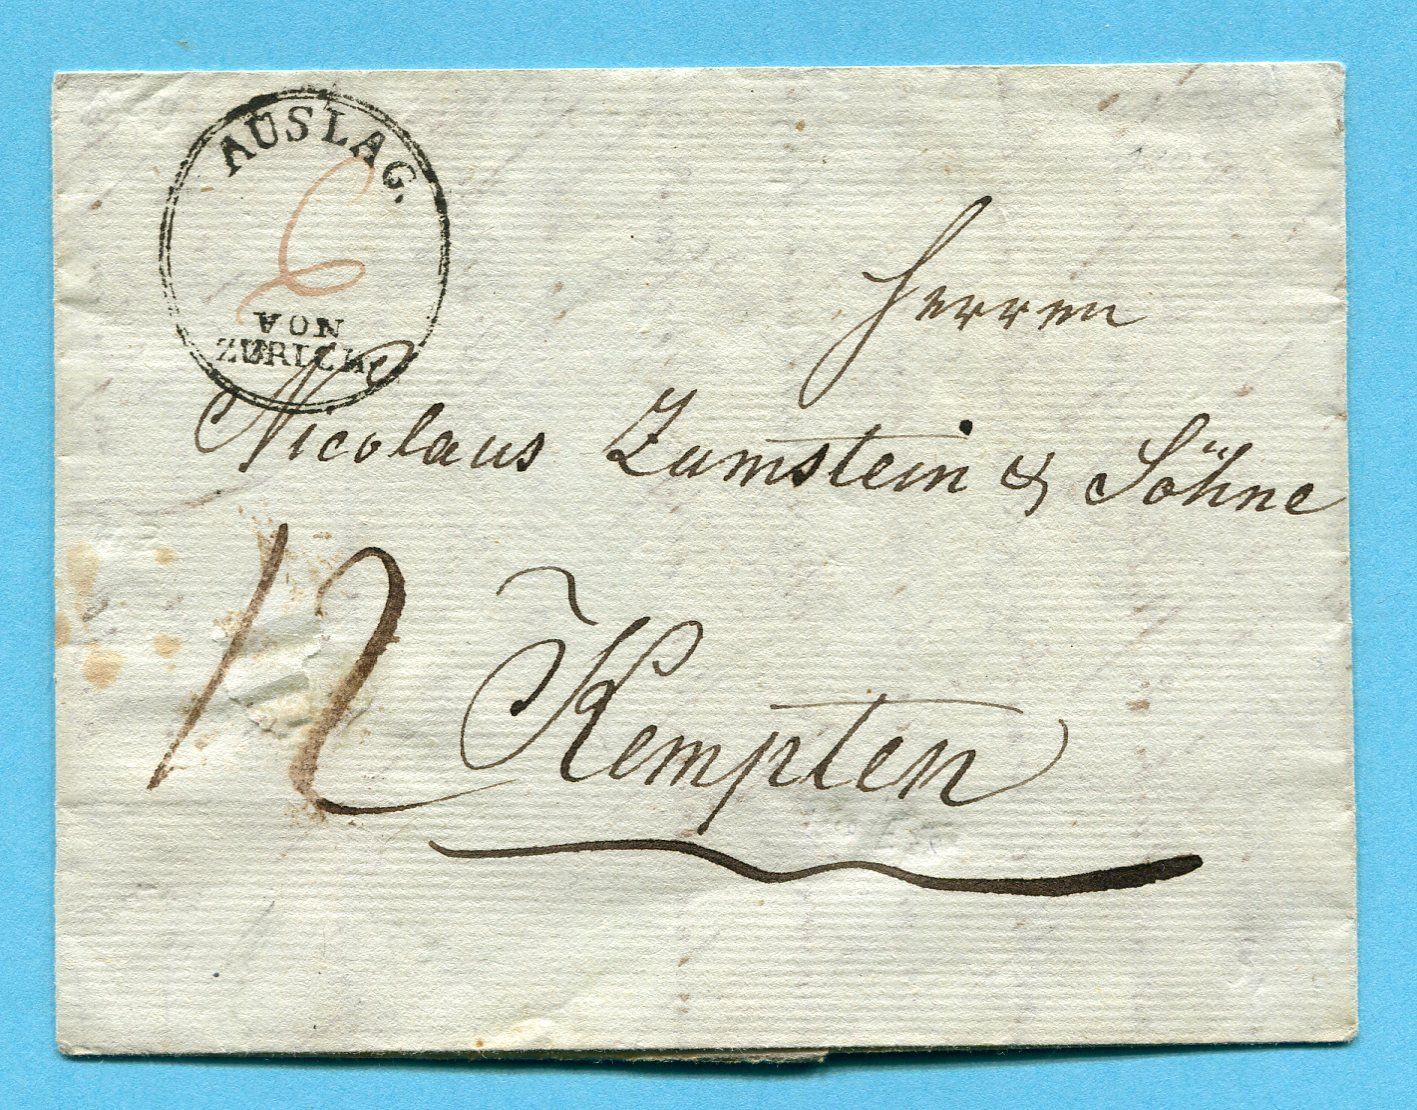 AUSLAG.
6
VON
ZÜRICH
Herren
Nicolaus Zumstein & Söhne
12
Kempten